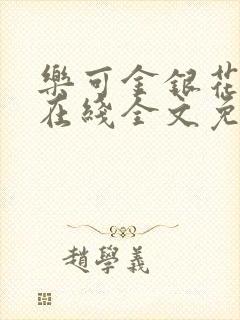 樂可金銀花
在綫全文免
趙學義